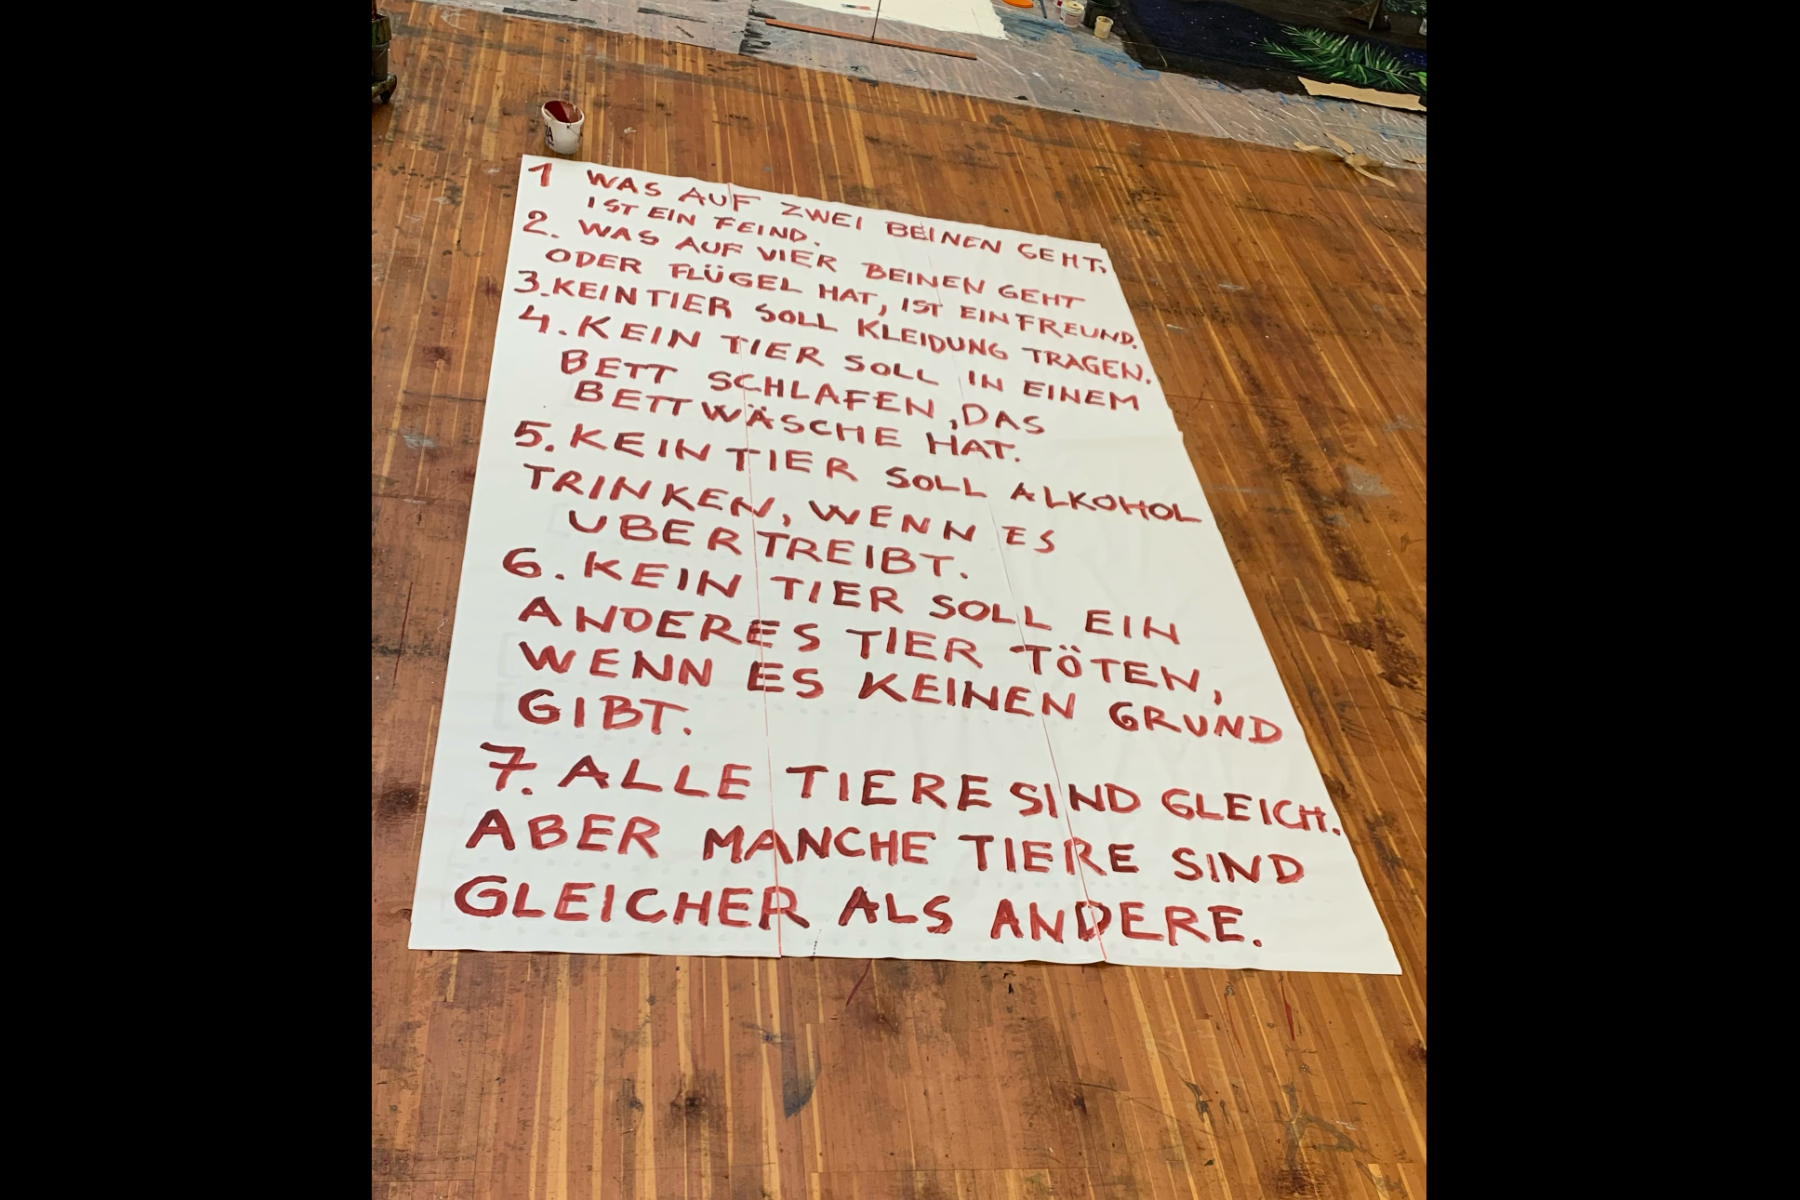 1 WAS AUF ZWEI BEINEN GEHT,
IST EIN FEIND.
2. WAS AUF VIER BEINEN GEHT
ODER FLÜGEL HAT, IST EIN FREUND.
3. KEIN TIER SOLL KLEIDUNG TRAGEN.
4. KEIN TIER SOLL IN EINEM
BETT SCHLAFEN, DAS
BETTWÄSCHE HAT.
5. KEIN TIER SOLL ALKOHOL
TRINKEN, WENN ES
UBERTREIBT.
6. KEIN TIER SOLL EIN
ANDERES TIER TÖTEN,
WENN ES KEINEN GRUND
GIBT.
7. ALLE TIERE SIND GLEICH.
ABER MANCHE TIERE SIND
GLEICHER ALS ANDERE.